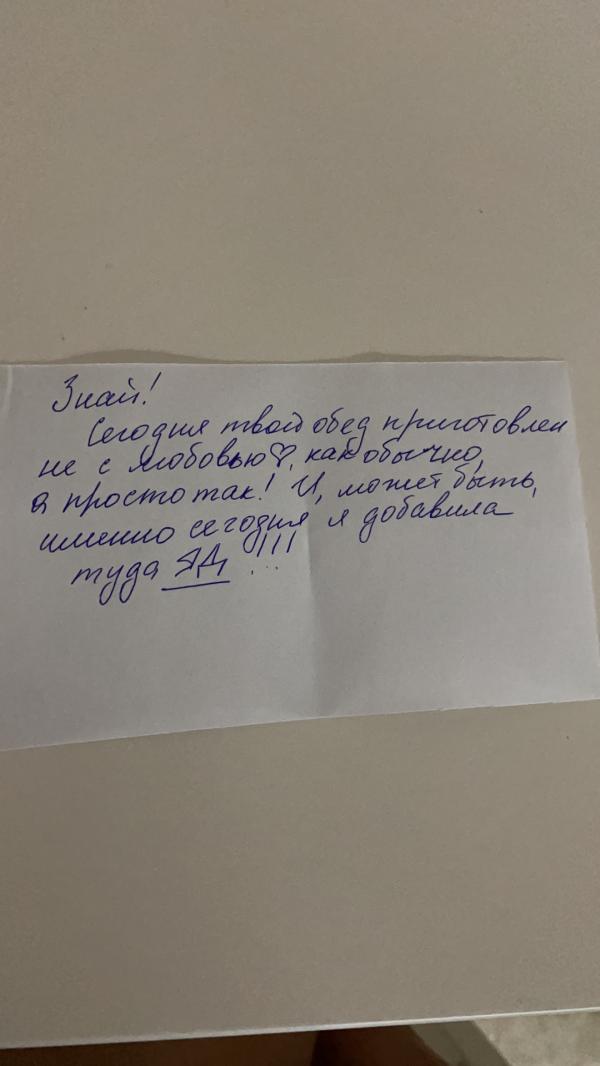 Знай!
Сегодня твой обед приготовлен
не с любовью♡, как обычно,
а просто так! И, может быть,
именно сегодня, я добавила
туда ЯД !!!